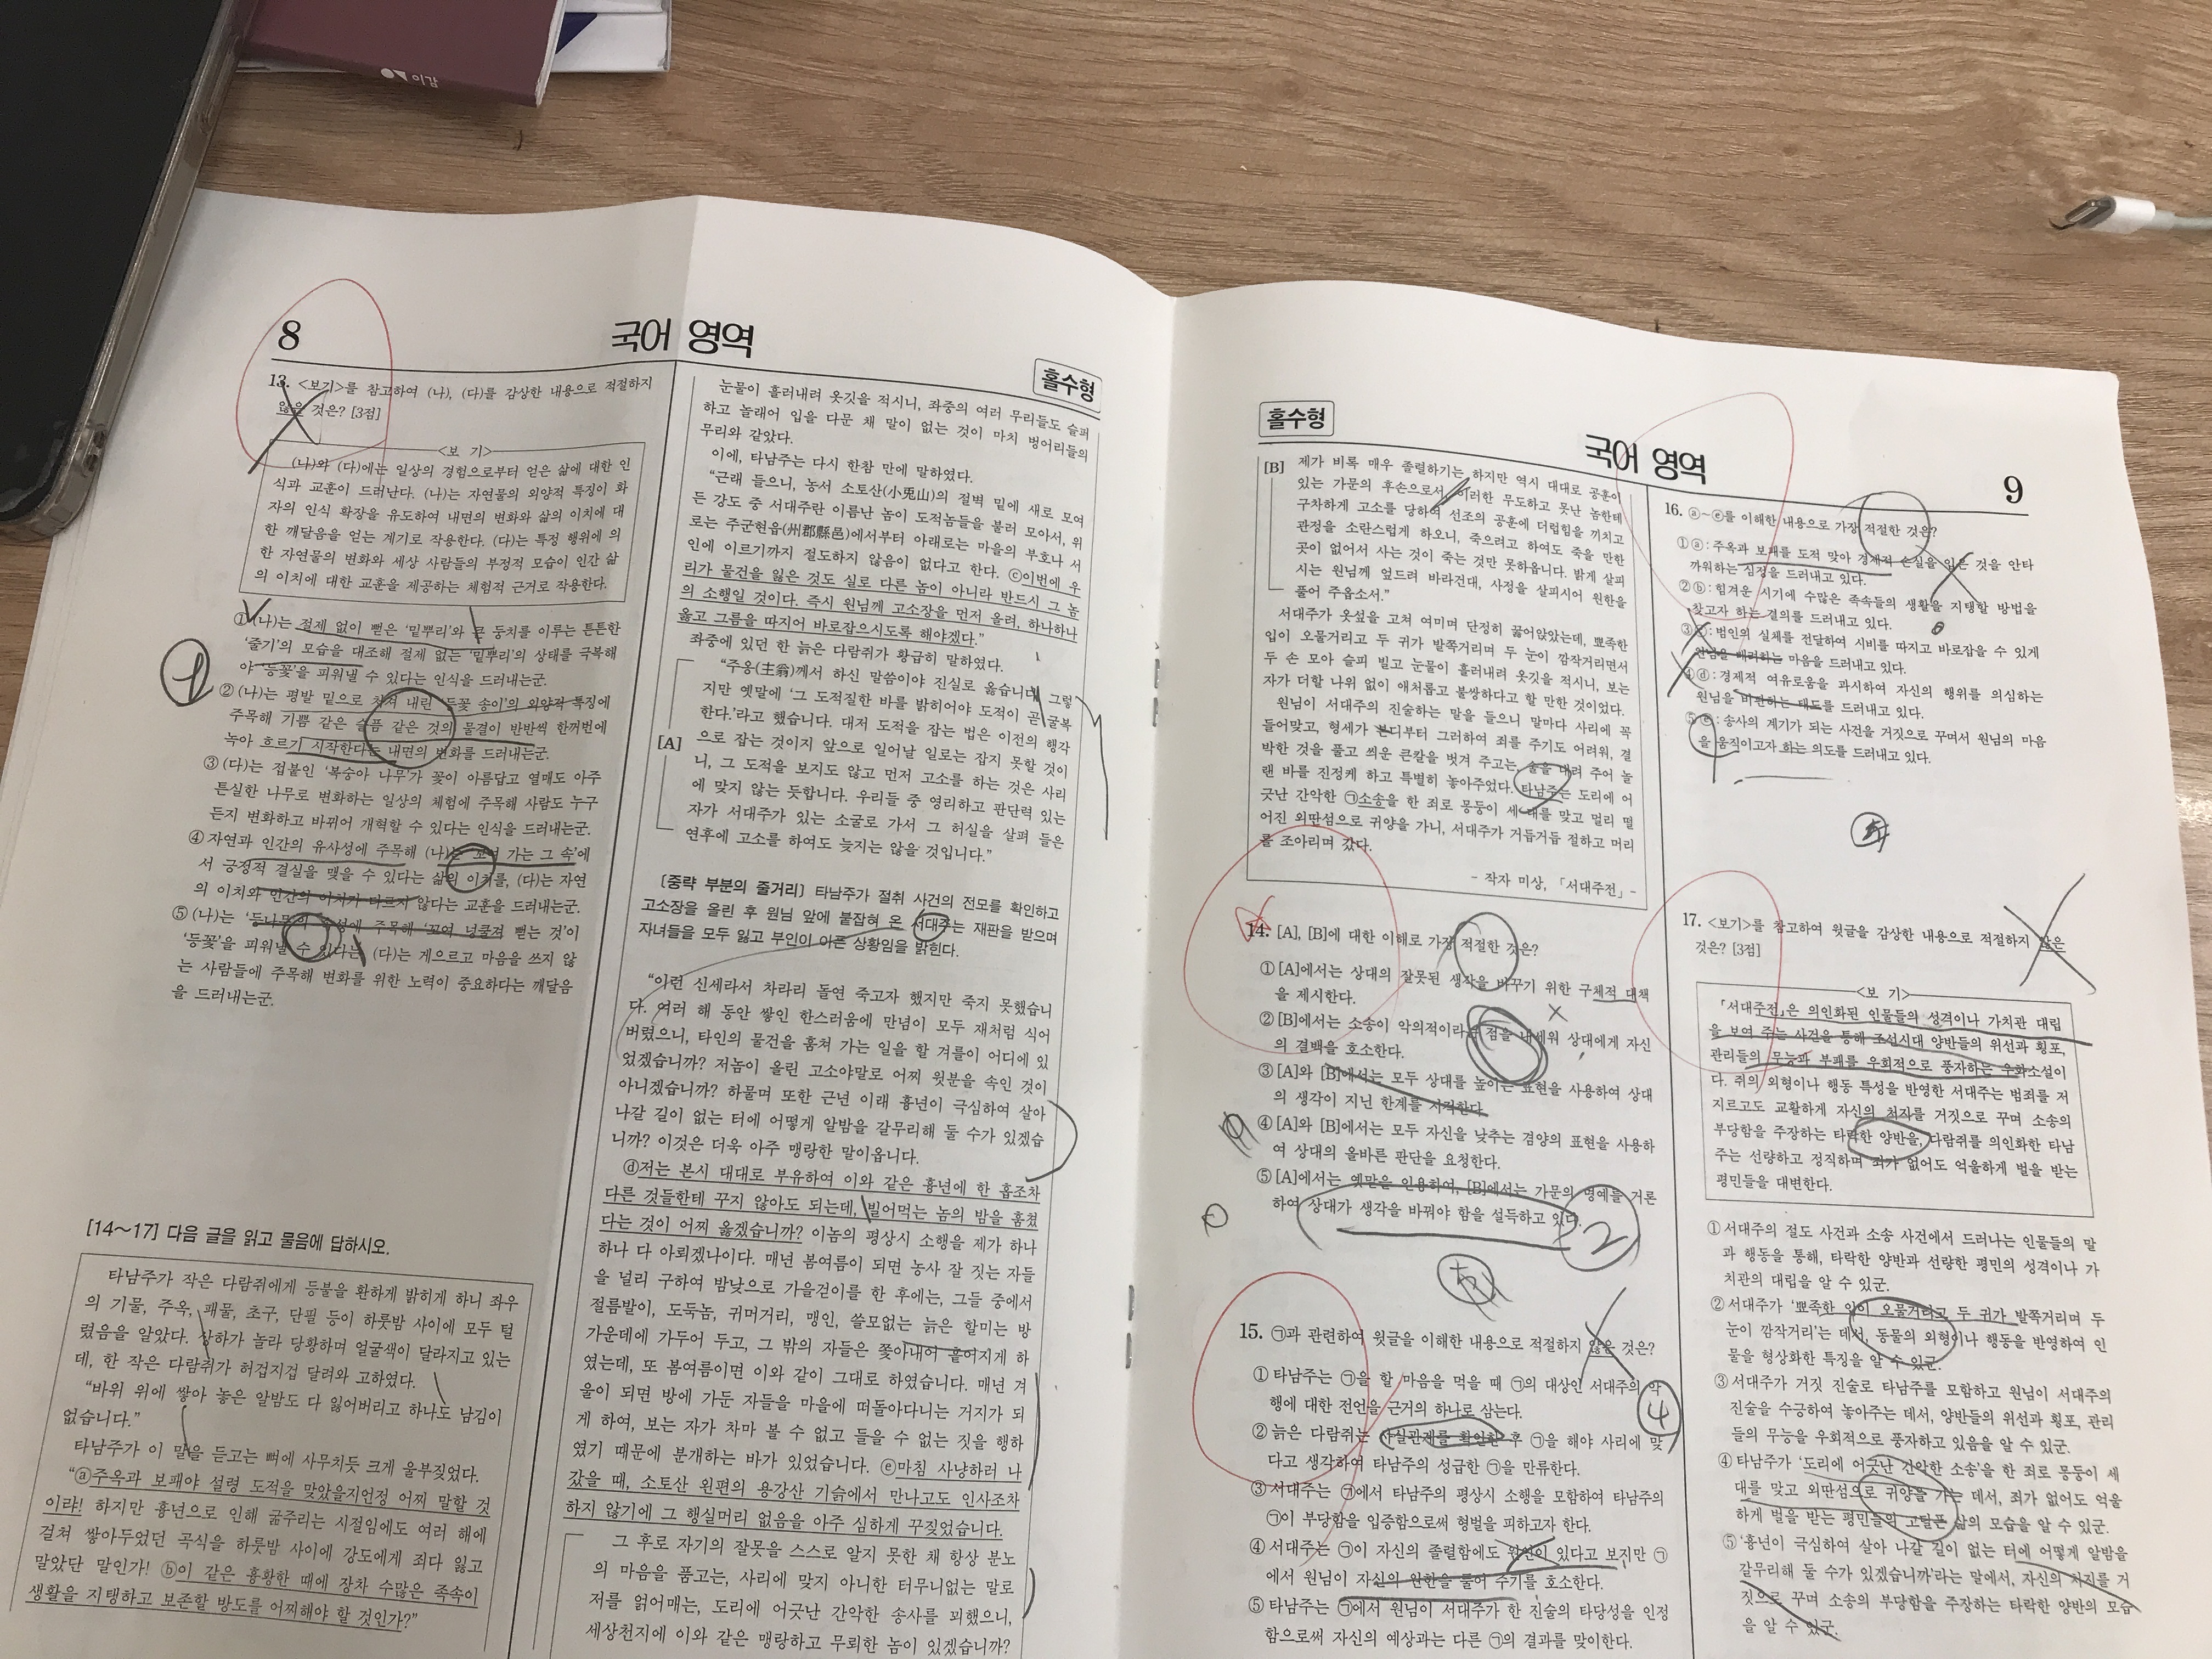 이감
8
국어 영역
홀수형
13. <보기>를 참고하여 (나), (다)를 감상한 내용으로 적절하지
않은 것은? [3점]
<보 기>
(나)와 (다)에는 일상의 경험으로부터 얻은 삶에 대한 인
식과 교훈이 드러난다. (나)는 자연물의 외양적 특징이 화
자의 인식 확장을 유도하여 내면의 변화와 삶의 이치에 대
한 깨달음을 얻는 계기로 작용한다. (다)는 특정 행위에 의
한 자연물의 변화와 세상 사람들의 부정적 모습이 인간 삶
의 이치에 대한 교훈을 제공하는 체험적 근거로 작용한다.
① (나)는 절제 없이 뻗은 '밑뿌리'와 큰 둥치를 이루는 튼튼한
'줄기'의 모습을 대조해 절제 없는 '밑뿌리'의 상태를 극복해
야 '등꽃'을 피워낼 수 있다는 인식을 드러내는군.
② (나)는 평발 밑으로 처져 내린 '등꽃 송이'의 외양적 특징에
주목해 기쁨 같은 슬픔 같은 것의 물결이 반반씩 한꺼번에
녹아 흐르기 시작한다는 내면의 변화를 드러내는군.
③ (다)는 접붙인 '복숭아 나무'가 꽃이 아름답고 열매도 아주
튼실한 나무로 변화하는 일상의 체험에 주목해 사람도 누구
든지 변화하고 바뀌어 개혁할 수 있다는 인식을 드러내는군.
④ 자연과 인간의 유사성에 주목해 (나)는 '꼬여 가는 그 속'에
서 긍정적 결실을 맺을 수 있다는 삶의 이치를, (다)는 자연
의 이치와 인간의 이치가 다르지 않다는 교훈을 드러내는군.
⑤ (나)는 '등나무'의 속성에 주목해 '꼬여 넝쿨져 뻗는 것'이
'등꽃'을 피워낼 수 있다는, (다)는 게으르고 마음을 쓰지 않
는 사람들에 주목해 변화를 위한 노력이 중요하다는 깨달음
을 드러내는군.
[14~17] 다음 글을 읽고 물음에 답하시오.
타남주가 작은 다람쥐에게 등불을 환하게 밝히게 하니 좌우
의 기물, 주옥, 패물, 초구, 단필 등이 하룻밤 사이에 모두 털
렸음을 알았다. 상하가 놀라 당황하며 얼굴색이 달라지고 있는
데, 한 작은 다람쥐가 허겁지겁 달려와 고하였다.
"바위 위에 쌓아 놓은 알밤도 다 잃어버리고 하나도 남김이
없습니다."
타남주가 이 말을 듣고는 뼈에 사무치듯 크게 울부짖었다.
"ⓐ주옥과 보패야 설령 도적을 맞았을지언정 어찌 말할 것
이랴! 하지만 흉년으로 인해 굶주리는 시절임에도 여러 해에
걸쳐 쌓아두었던 곡식을 하룻밤 사이에 강도에게 죄다 잃고
말았단 말인가! ⓑ이 같은 흉황한 때에 장차 수많은 족속이
생활을 지탱하고 보존할 방도를 어찌해야 할 것인가?"
눈물이 흘러내려 옷깃을 적시니, 좌중의 여러 무리들도 슬퍼
하고 놀래어 입을 다문 채 말이 없는 것이 마치 벙어리들의
무리와 같았다.
이에, 타남주는 다시 한참 만에 말하였다.
"근래 들으니, 농서 소토산(小兎山)의 절벽 밑에 새로 모여
든 강도 중 서대주란 이름난 놈이 도적놈들을 불러 모아서, 위
로는 주군현읍(州郡縣邑)에서부터 아래로는 마을의 부호나 서
인에 이르기까지 절도하지 않음이 없다고 한다. ⓒ이번에 우
리가 물건을 잃은 것도 실로 다른 놈이 아니라 반드시 그 놈
의 소행일 것이다. 즉시 원님께 고소장을 먼저 올려, 하나하나
옳고 그름을 따지어 바로잡으시도록 해야겠다."
좌중에 있던 한 늙은 다람쥐가 황급히 말하였다.
"주옹(主翁)께서 하신 말씀이야 진실로 옳습니다. 그렇
지만 옛말에 '그 도적질한 바를 밝히어야 도적이 곧 굴복
한다.'라고 했습니다. 대저 도적을 잡는 법은 이전의 행각
[A] 으로 잡는 것이지 앞으로 일어날 일로는 잡지 못할 것이
니, 그 도적을 보지도 않고 먼저 고소를 하는 것은 사리
에 맞지 않는 듯합니다. 우리들 중 영리하고 판단력 있는
자가 서대주가 있는 소굴로 가서 그 허실을 살펴 들은
연후에 고소를 하여도 늦지는 않을 것입니다."
[중략 부분의 줄거리] 타남주가 절취 사건의 전모를 확인하고
고소장을 올린 후 원님 앞에 붙잡혀 온 서대주는 재판을 받으며
자녀들을 모두 잃고 부인이 아픈 상황임을 밝힌다.
"이런 신세라서 차라리 돌연 죽고자 했지만 죽지 못했습니
다. 여러 해 동안 쌓인 한스러움에 만념이 모두 재처럼 식어
버렸으니, 타인의 물건을 훔쳐 가는 일을 할 겨를이 어디에 있
었겠습니까? 저놈이 올린 고소야말로 어찌 윗분을 속인 것이
아니겠습니까? 하물며 또한 근년 이래 흉년이 극심하여 살아
나갈 길이 없는 터에 어떻게 알밤을 갈무리해 둘 수가 있겠습
니까? 이것은 더욱 아주 맹랑한 말이옵니다.
ⓓ저는 본시 대대로 부유하여 이와 같은 흉년에 한 홉조차
다른 것들한테 꾸지 않아도 되는데, 빌어먹는 놈의 밤을 훔쳤
다는 것이 어찌 옳겠습니까? 이놈의 평상시 소행을 제가 하나
하나 다 아뢰겠나이다. 매년 봄여름이 되면 농사 잘 짓는 자들
을 널리 구하여 밤낮으로 가을걷이를 한 후에는, 그들 중에서
절름발이, 도둑놈, 귀머거리, 맹인, 쓸모없는 늙은 할미는 방
가운데에 가두어 두고, 그 밖의 자들은 쫓아내어 흩어지게 하
였는데, 또 봄여름이면 이와 같이 그대로 하였습니다. 매년 겨
울이 되면 방에 가둔 자들을 마을에 떠돌아다니는 거지가 되
게 하여, 보는 자가 차마 볼 수 없고 들을 수 없는 짓을 행하
였기 때문에 분개하는 바가 있었습니다. ⓔ마침 사냥하러 나
갔을 때, 소토산 왼편의 용강산 기슭에서 만나고도 인사조차
하지 않기에 그 행실머리 없음을 아주 심하게 꾸짖었습니다.
그 후로 자기의 잘못을 스스로 알지 못한 채 항상 분노
의 마음을 품고는, 사리에 맞지 아니한 터무니없는 말로
저를 얽어매는, 도리에 어긋난 간악한 송사를 꾀했으니,
세상천지에 이와 같은 맹랑하고 무뢰한 놈이 있겠습니까?
홀수형
국어 영역
9
[B] 제가 비록 매우 졸렬하기는 하지만 역시 대대로 공훈이
있는 가문의 후손으로서, 이러한 무도하고 못난 놈한테
구차하게 고소를 당하여 선조의 공훈에 더럽힘을 끼치고
관정을 소란스럽게 하오니, 죽으려고 하여도 죽을 만한
곳이 없어서 사는 것이 죽는 것만 못하옵니다. 밝게 살피
시는 원님께 엎드려 바라건대, 사정을 살피시어 원한을
풀어 주옵소서."
서대주가 옷섶을 고쳐 여미며 단정히 꿇어앉았는데, 뾰족한
입이 오물거리고 두 귀가 발쪽거리며 두 눈이 깜작거리면서
두 손 모아 슬피 빌고 눈물이 흘러내려 옷깃을 적시니, 보는
자가 더할 나위 없이 애처롭고 불쌍하다고 할 만한 것이었다.
원님이 서대주의 진술하는 말을 들으니 말마다 사리에 꼭
들어맞고, 형세가 본디부터 그러하여 죄를 주기도 어려워, 결
박한 것을 풀고 씌운 큰칼을 벗겨 주고는, 술을 내려 주어 놀
랜 바를 진정케 하고 특별히 놓아주었다. 타남주는 도리에 어
긋난 간악한 ㉠소송을 한 죄로 몽둥이 세 대를 맞고 멀리 떨
어진 외딴섬으로 귀양을 가니, 서대주가 거듭거듭 절하고 머리
를 조아리며 갔다.
- 작자 미상, 「서대주전」 -
14. [A], [B]에 대한 이해로 가장 적절한 것은?
① [A]에서는 상대의 잘못된 생각을 바꾸기 위한 구체적 대책
을 제시한다.
② [B]에서는 소송이 악의적이라는 점을 내세워 상대에게 자신
의 결백을 호소한다.
③ [A]와 [B]에서는 모두 상대를 높이는 표현을 사용하여 상대
의 생각이 지닌 한계를 지적한다.
④ [A]와 [B]에서는 모두 자신을 낮추는 겸양의 표현을 사용하
여 상대의 올바른 판단을 요청한다.
⑤ [A]에서는 옛말을 인용하여, [B]에서는 가문의 명예를 거론
하여 상대가 생각을 바꿔야 함을 설득하고 있다.
2
15. ㉠과 관련하여 윗글을 이해한 내용으로 적절하지 않은 것은?
① 타남주는 ㉠을 할 마음을 먹을 때 ㉠의 대상인 서대주의 악
행에 대한 전언을 근거의 하나로 삼는다.
4
② 늙은 다람쥐는 사실관계를 확인한 후 ㉠을 해야 사리에 맞
다고 생각하여 타남주의 성급한 ㉠을 만류한다.
③ 서대주는 ㉠에서 타남주의 평상시 소행을 모함하여 타남주의
㉠이 부당함을 입증함으로써 형벌을 피하고자 한다.
④ 서대주는 ㉠이 자신의 졸렬함에도 원인이 있다고 보지만 ㉠
에서 원님이 자신의 원한을 풀어 주기를 호소한다.
⑤ 타남주는 ㉠에서 원님이 서대주가 한 진술의 타당성을 인정
함으로써 자신의 예상과는 다른 ㉠의 결과를 맞이한다.
16. ⓐ~ⓔ를 이해한 내용으로 가장 적절한 것은?
① ⓐ: 주옥과 보패를 도적 맞아 경제적 손실을 입은 것을 안타
까워하는 심정을 드러내고 있다.
② ⓑ: 힘겨운 시기에 수많은 족속들의 생활을 지탱할 방법을
찾고자 하는 결의를 드러내고 있다.
③ ⓒ: 범인의 실체를 전달하여 시비를 따지고 바로잡을 수 있게
원님을 배려하는 마음을 드러내고 있다.
④ ⓓ: 경제적 여유로움을 과시하여 자신의 행위를 의심하는
원님을 비판하는 태도를 드러내고 있다.
⑤ ⓔ: 송사의 계기가 되는 사건을 거짓으로 꾸며서 원님의 마음
을 움직이고자 하는 의도를 드러내고 있다.
17. <보기>를 참고하여 윗글을 감상한 내용으로 적절하지 않은
것은? [3점]
<보 기>
「서대주전」은 의인화된 인물들의 성격이나 가치관 대립
을 보여 주는 사건을 통해 조선시대 양반들의 위선과 횡포,
관리들의 무능과 부패를 우회적으로 풍자하는 우화소설이
다. 쥐의 외형이나 행동 특성을 반영한 서대주는 범죄를 저
지르고도 교활하게 자신의 처지를 거짓으로 꾸며 소송의
부당함을 주장하는 타락한 양반을, 다람쥐를 의인화한 타남
주는 선량하고 정직하며 죄가 없어도 억울하게 벌을 받는
평민들을 대변한다.
① 서대주의 절도 사건과 소송 사건에서 드러나는 인물들의 말
과 행동을 통해, 타락한 양반과 선량한 평민의 성격이나 가
치관의 대립을 알 수 있군.
② 서대주가 '뾰족한 입이 오물거리고 두 귀가 발쪽거리며 두
눈이 깜작거리'는 데서, 동물의 외형이나 행동을 반영하여 인
물을 형상화한 특징을 알 수 있군.
③ 서대주가 거짓 진술로 타남주를 모함하고 원님이 서대주의
진술을 수긍하여 놓아주는 데서, 양반들의 위선과 횡포, 관리
들의 무능을 우회적으로 풍자하고 있음을 알 수 있군.
④ 타남주가 '도리에 어긋난 간악한 소송'을 한 죄로 몽둥이 세
대를 맞고 외딴섬으로 귀양을 가는 데서, 죄가 없어도 억울
하게 벌을 받는 평민들의 고달픈 삶의 모습을 알 수 있군.
⑤ '흉년이 극심하여 살아 나갈 길이 없는 터에 어떻게 알밤을
갈무리해 둘 수가 있겠습니까'라는 말에서, 자신의 처지를 거
짓으로 꾸며 소송의 부당함을 주장하는 타락한 양반의 모습
을 알 수 있군.